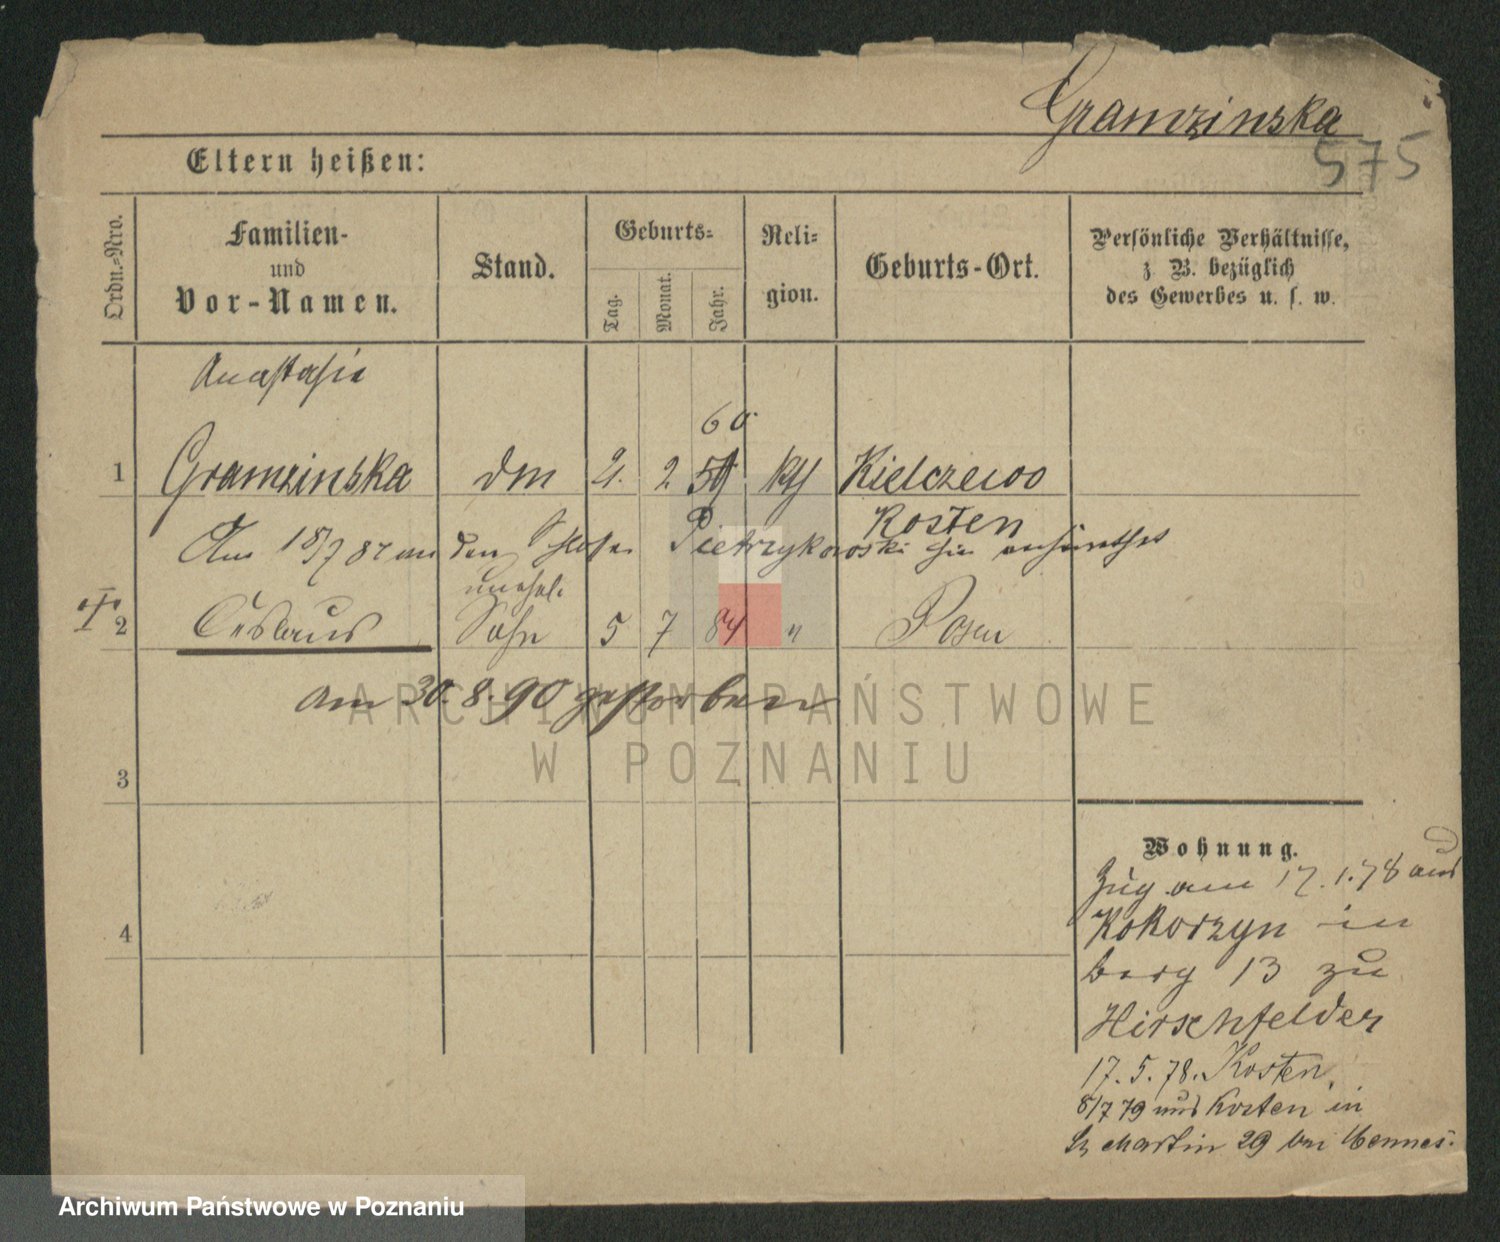 Gramzinska
575
Eltern heißen:
Ordn.-Nro.
Familien-
und
Vor-Namen.
Stand.
Geburts-
Tag.
Monat.
Jahr.
Reli-
gion.
Geburts-Ort.
Persönliche Verhältnisse,
z. B. bezüglich
des Gewerbes u. s. w.
Anastasia
60
1 Gramzinska 2. 2 59 kth Kielczewo
Kosten
Am 18/7 87 an den Pietrzykowski hier
unehel.
2 Ceslaus Sohn 5 7 84 " Posen
am 30.8.90 gestorben
3
4
Wohnung.
Zug am 17.1.78 aus
Kokorzyn in
Berg 13 zu
Hirschfelder
17.5.78. Kosten,
8/7 79 aus Kosten in
St Martin 29 bei
ARCHIWUM PAŃSTWOWE
W POZNANIU
Archiwum Państwowe w Poznaniu